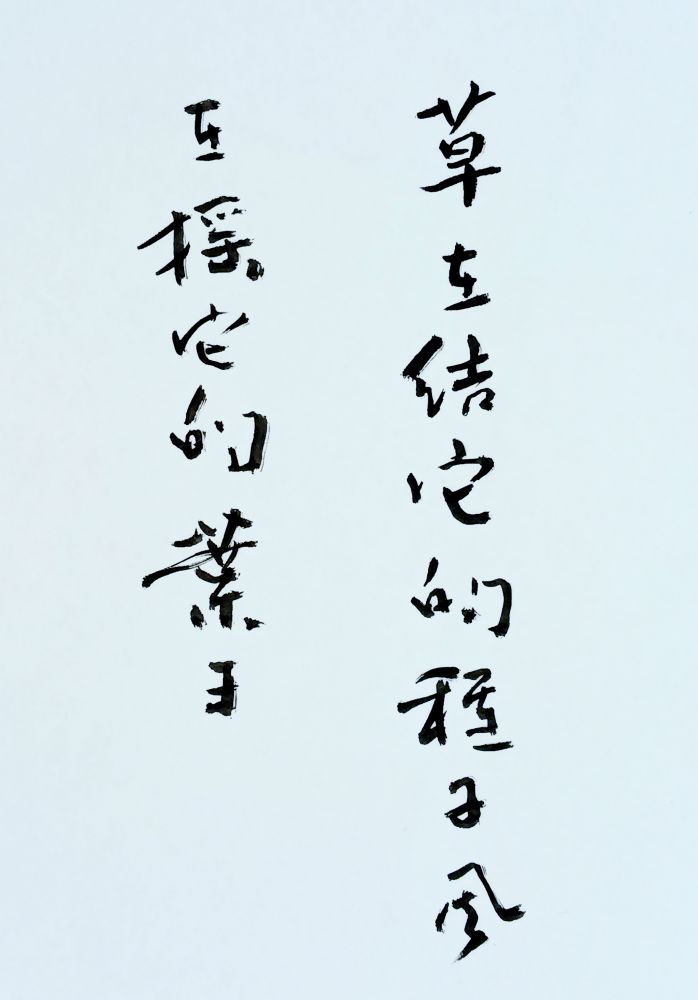 草在结它的種子风
在摇它的葉子